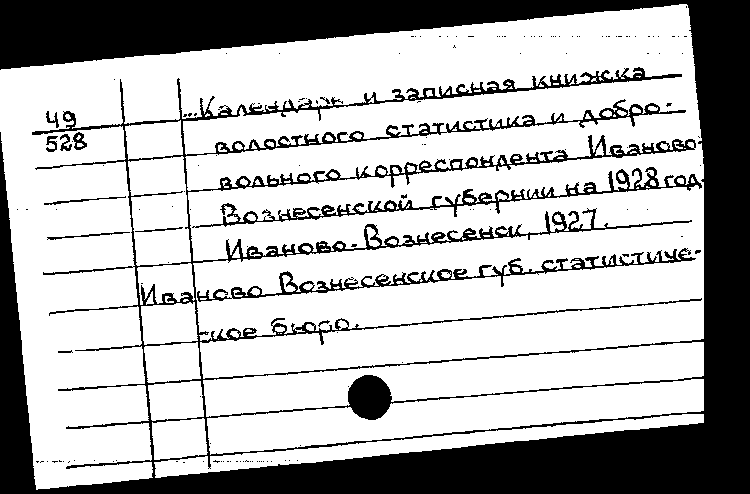 49
528
...Календарь и записная книжка
волостного статистика и добро-
вольного корреспондента Иваново-
Вознесенской губернии на 1928 год.
Иваново-Вознесенск, 1927.
Иваново Вознесенское губ. статистиче-
ское бюро.